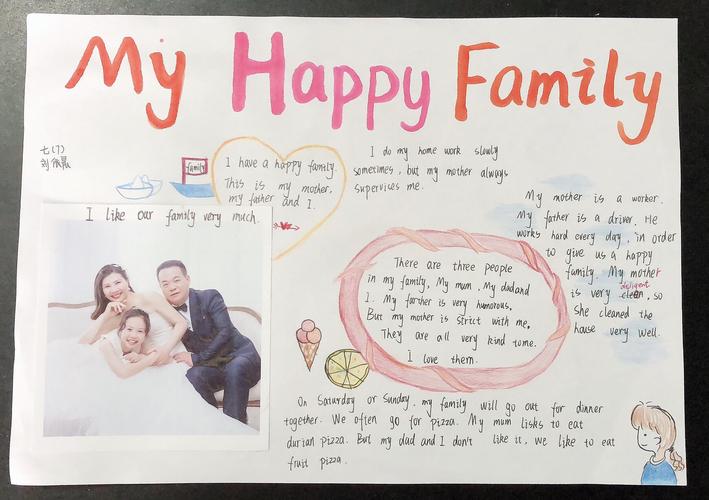 My Happy Family
七(7)
刘
family
I have a happy family.
This is my mother,
my father and I.
I like our family very much.
I do my home work slowly
sometimes, but my mother always
supervises me.
My mother is a worker.
My father is a driver. He
works hard every day, in order
to give us a happy
family. My mother
diligent
is very clean, so
she cleaned the
house very well.
There are three people
in my family, My mum, My dad and
I. My farther is very humorous.
But my mother is strict with me.
They are all very kind to me.
I love them.
On Saturday or Sunday, my family will go out for dinner
together. We often go for pizza. My mum lisks to eat
durian pizza. But my dad and I don't like it, we like to eat
fruit pizza.